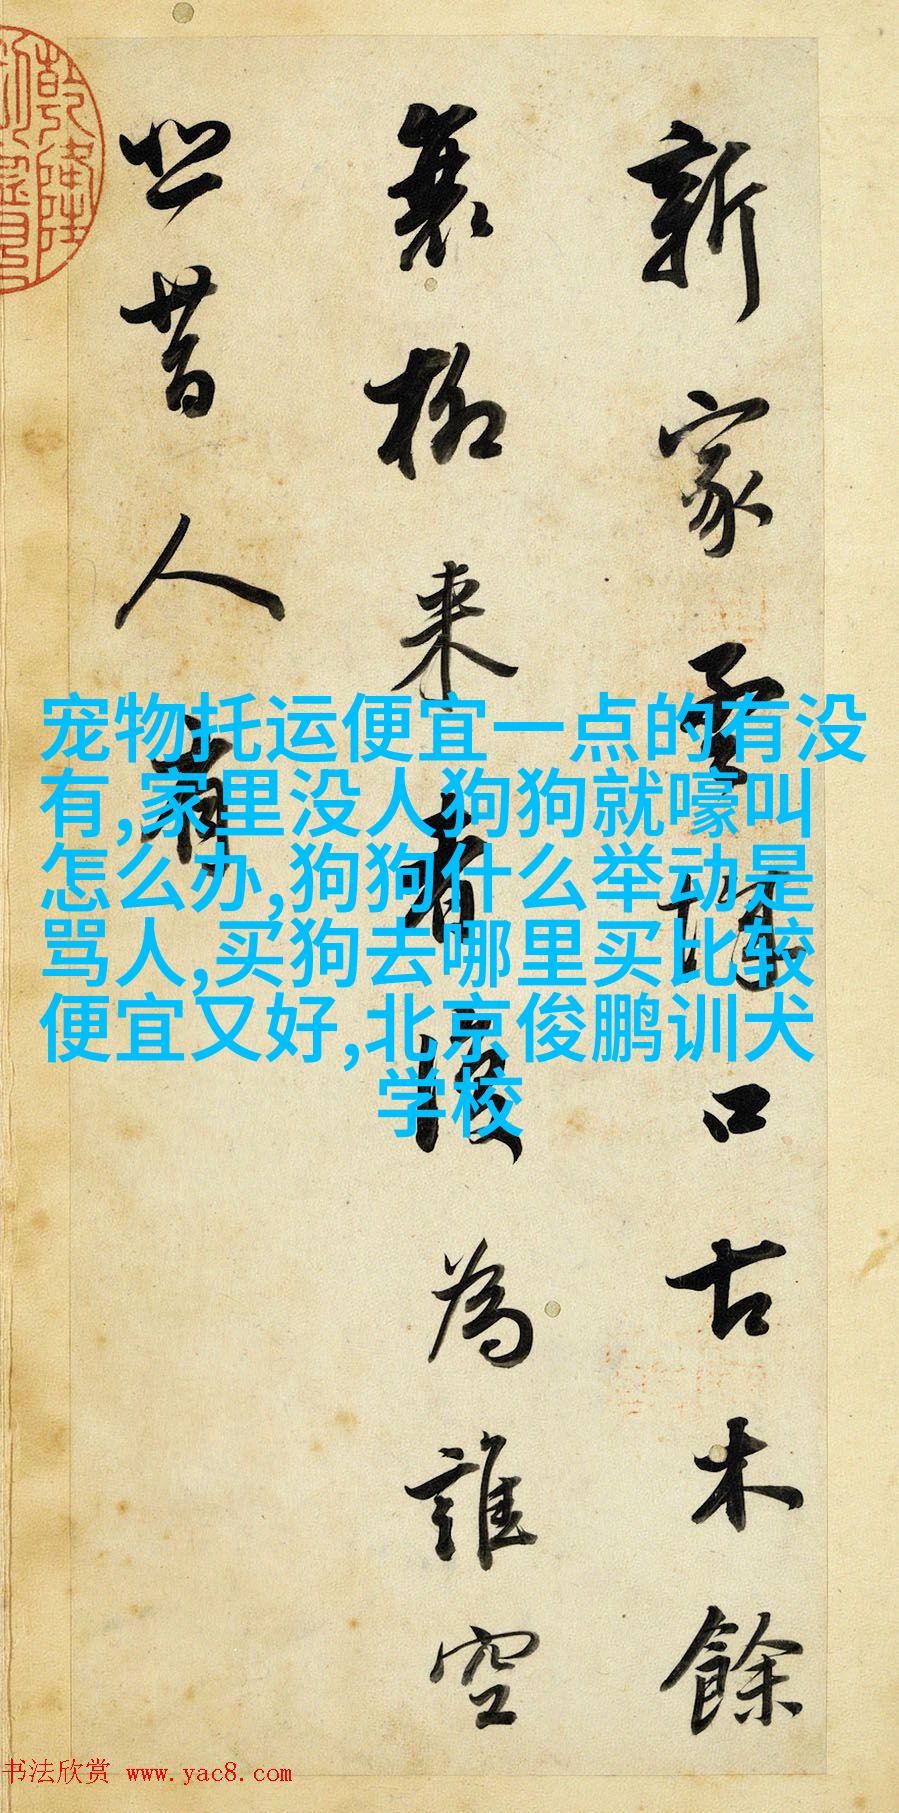 新家孟城口古木餘
衰柳来者復為誰空
悲昔人有
乾隆
宠物托运便宜一点的有没
有,家里没人狗狗就嚎叫
怎么办,狗狗什么举动是
骂人,买狗去哪里买比较
便宜又好,北京俊鹏训犬
学校
书法欣赏 www.yac8.com